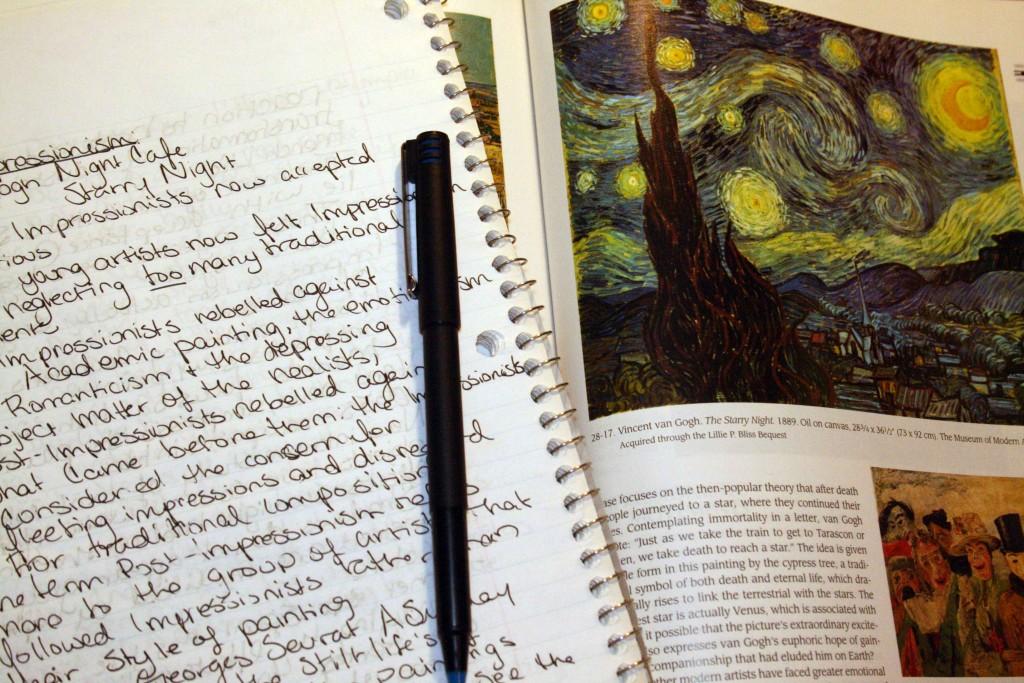 ressionism
ogh Night Cafe
Starry Night
Impressionists now accepted
ious
young artists now felt Impression
neglecting too many traditional
ents
Impressionists rebelled against
Academic painting, the emoti sm
Romanticism + the depressing
bject matter of the realists,
ost-Impressionists rebelled again
hat came before them: the Im ssionists
considered the concern for
fleeting impressions and disre d
for traditional compositions
he term Post-impressionism
more to the group of artist that
followed Impressionists rather than
heir style of painting
Georges Seurat, A Sunday
the still life's
paintings
see the
28-17. Vincent van Gogh. The Starry Night. 1889. Oil on canvas, 28¾ x 36½" (73 x 92 cm). The Museum of Modern A
Acquired through the Lillie P. Bliss Bequest
ase focuses on the then-popular theory that after death
ople journeyed to a star, where they continued their
es. Contemplating immortality in a letter, van Gogh
ote: "Just as we take the train to get to Tarascon or
en, we take death to reach a star." The idea is given
e form in this painting by the cypress tree, a tradi-
l symbol of both death and eternal life, which dra-
lly rises to link the terrestrial with the stars. The
est star is actually Venus, which is associated with
it possible that the picture's extraordinary excite-
so expresses van Gogh's euphoric hope of gain-
companionship that had eluded him on Earth?
ther modern artists have faced greater emotional